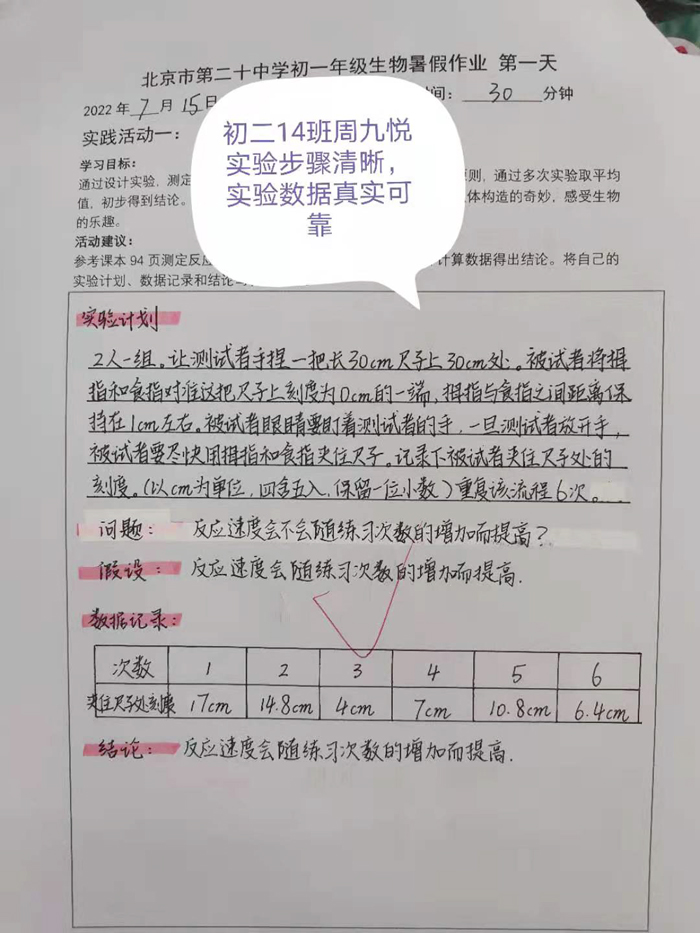 北京市第二十中学初一年级生物暑假作业 第一天
2022 年 7 月 15 日 时间: 30 分钟
初二14班周九悦
实验步骤清晰，
实验数据真实可
靠
实践活动一：
学习目标：
通过设计实验，测定 原则，通过多次实验取平均
值，初步得到结论。 体构造的奇妙，感受生物
的乐趣。
活动建议：
参考课本 94 页测定反应 计算数据得出结论。将自己的
实验计划、数据记录和结论
实验计划
2人一组。让测试者手捏一把长30cm尺子上30cm处。被试者将拇
指和食指对准这把尺子上刻度为0cm的一端，拇指与食指之间距离保
持在1cm左右。被试者眼睛要盯着测试者的手，一旦测试者放开手，
被试者要尽快用拇指和食指夹住尺子。记录下被试者夹住尺子处的
刻度。（以cm为单位，四舍五入，保留一位小数）重复该流程6次。
问题： 反应速度会不会随练习次数的增加而提高？
假设： 反应速度会随练习次数的增加而提高.
数据记录:
次数 1 2 3 4 5 6
夹住尺子处刻度 17cm 14.8cm 4cm 7cm 10.8cm 6.4cm
结论： 反应速度会随练习次数的增加而提高.